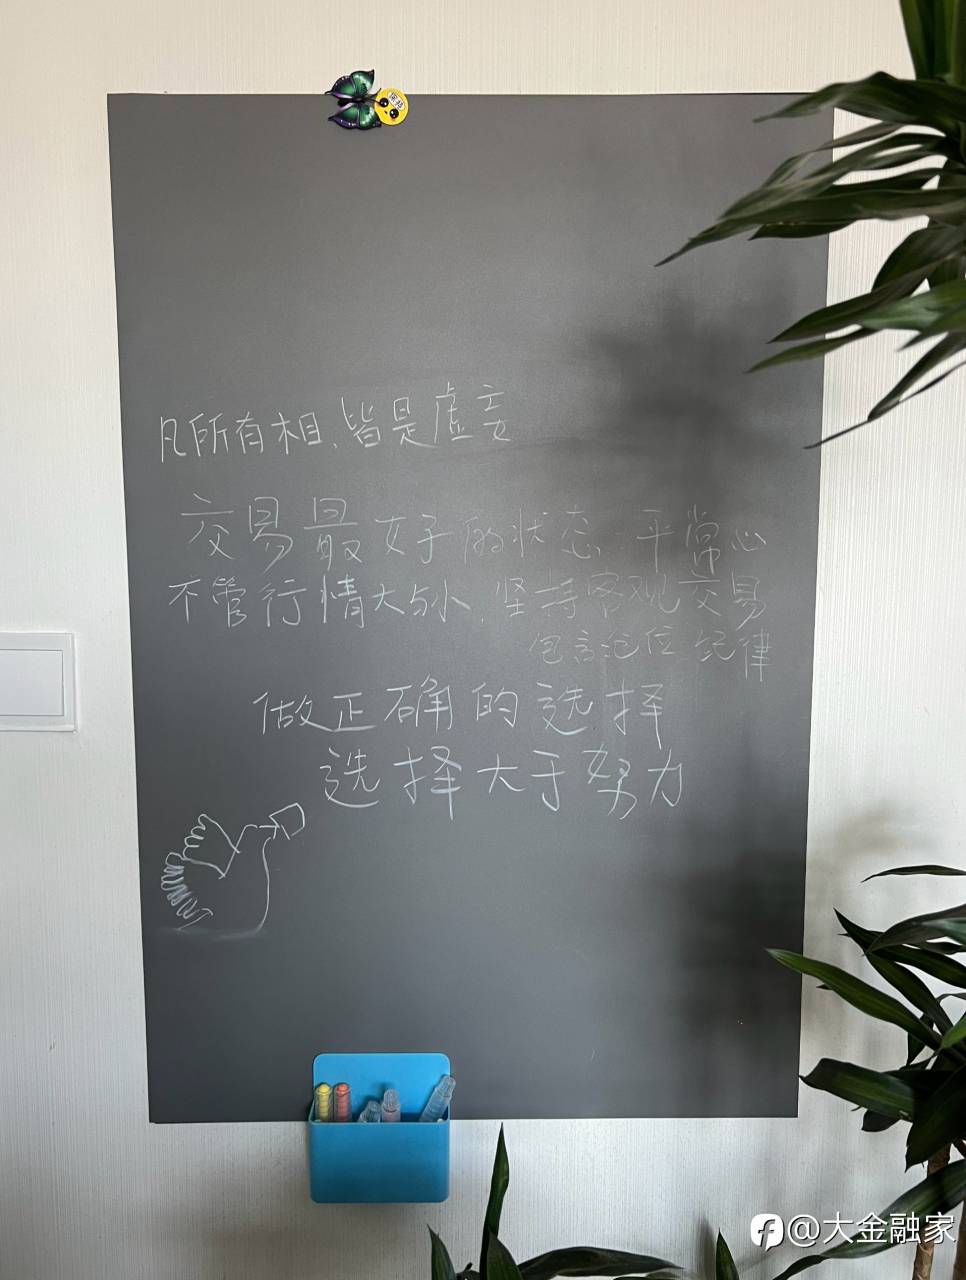 凡所有相、皆是虚妄
交易最好的状态 平常心
不管行情大与小，坚持客观交易
包含仓位 纪律
做正确的选择
选择大于努力
@大金融家